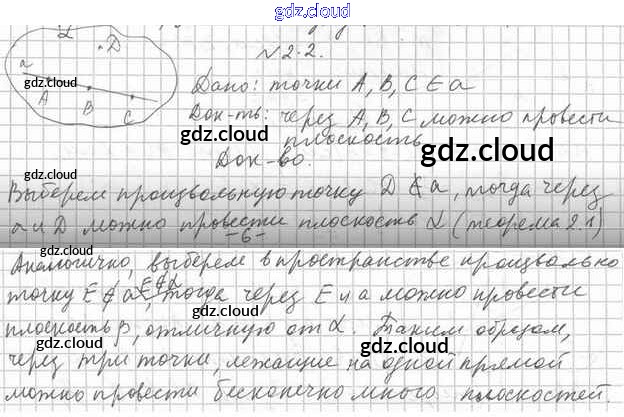 gdz.cloud
α
D
N 2.2.
a
A
B
C
gdz.cloud
Дано: точки A, B, C ∈ a
gdz.cloud
Док-ть: через A, B, C можно провести
плоскость
gdz.cloud
gdz.cloud
Док-во.
Выберем произвольную точку D ∉ a, тогда через
a и D можно провести плоскость α (теорема 2.1)
-6-
gdz.cloud
gdz.cloud
Аналогично, выберем в пространстве произвольно
точку E ∉ a, E ∉ α, тогда через E и a можно провести
gdz.cloud
gdz.cloud
плоскость β, отличную от α. Таким образом,
gdz.cloud
через три точки, лежащие на одной прямой
gdz.cloud
можно провести бесконечно много плоскостей.
gdz.cloud